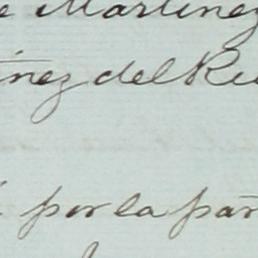 e Martinez
inez del Ru
por la par